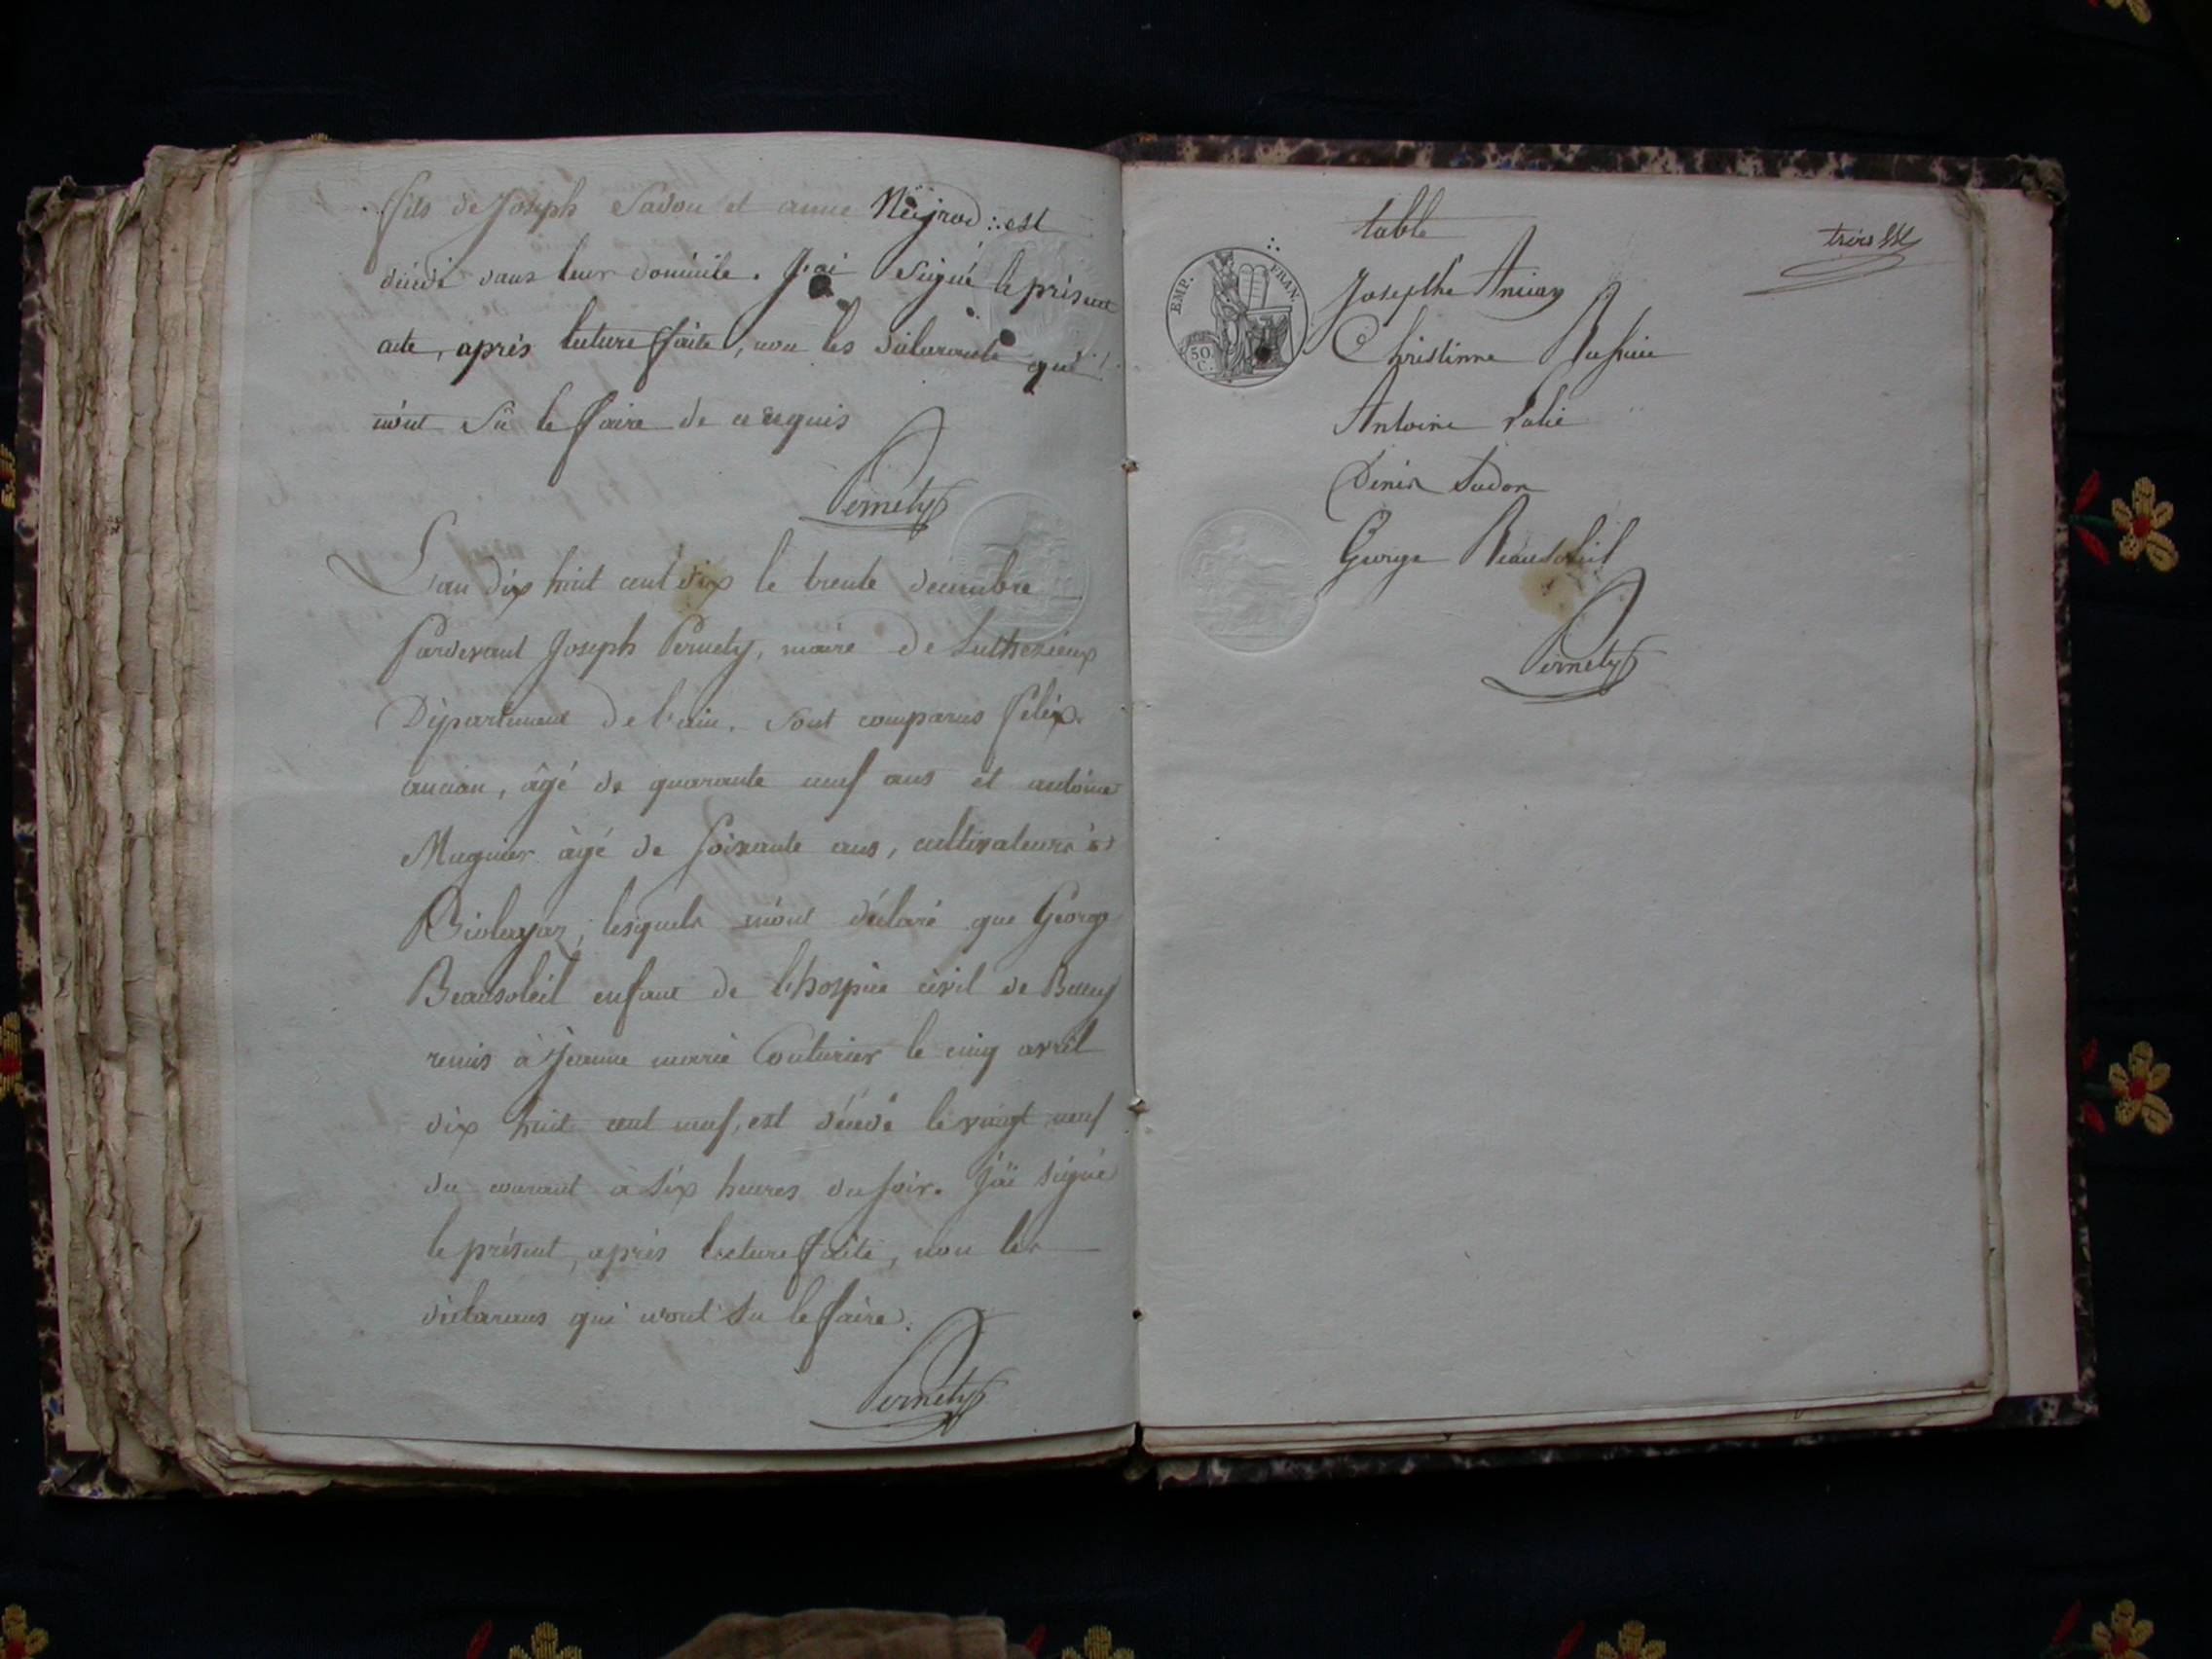 fils de Joseph Sadou et anne Neÿrod : est
décédé dans leur domicile. J'ai signé le présent
acte, après lecture faite, non les déclarants qui
n'ont Sû le faire de ce requis
Pernety
L'an dix huit cent dix le trente decembre
Pardevant Joseph Pernety, maire de Luthezieux
Département de l'ain. Sont comparus félix
ancian, âgé de quarante neuf ans et antoine
Mugnier âgé de soixante ans, cultivateurs à
Biolayaz, lesquels m'ont déclaré que George
Beausoleil enfant de l'hospice civil de Belley
remis à Jeanne marie Couturier le cinq avril
dix huit cent neuf, est décédé le vingt neuf
du courant à six heures du soir. J'ai signé
le présent, après lecture faite, non les
déclarans qui n'ont su le faire.
Pernety
table
EMP. FRAN.
50 C.
Josephe Ancian
Christinne
Antoine
Denis Sadou
George Beausoleil
Pernety